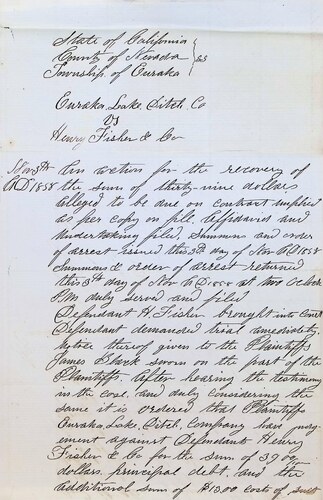 State of California
County of Nevada } ss
Township of Ouraka
Ouraka, Lake, Ditch, Co
VS
Henry Fisher & Co
Nov 3th An action for the recovery of
AD 1858 the sum of thirty-nine dollars
alleged to be due on contract implied
as per copy on file. Affidavid and
Undertaking filed, Summons and order
of arrest issued this 3th day of Nov AD 1858
Summons & order of arrest returned
this 3th day of Nov AD 1858 at two Oclock
P.M duly served and filed
Defendant H. Fisher brought into Court
Defendant demanded trial amediately,
notice thereof given to the Plaintiffs
James sworn on the part of the
Plaintiffs. After hearing the testimony
in the case, and duly considering the
same it is ordered that Plaintiffs
Ouraka, Lake, Ditch, Company have judg-
ement against Defendants Henry
Fisher & Co for the sum of 39
dollars, principal debt, and the
additional sum of $13.00 costs of suit